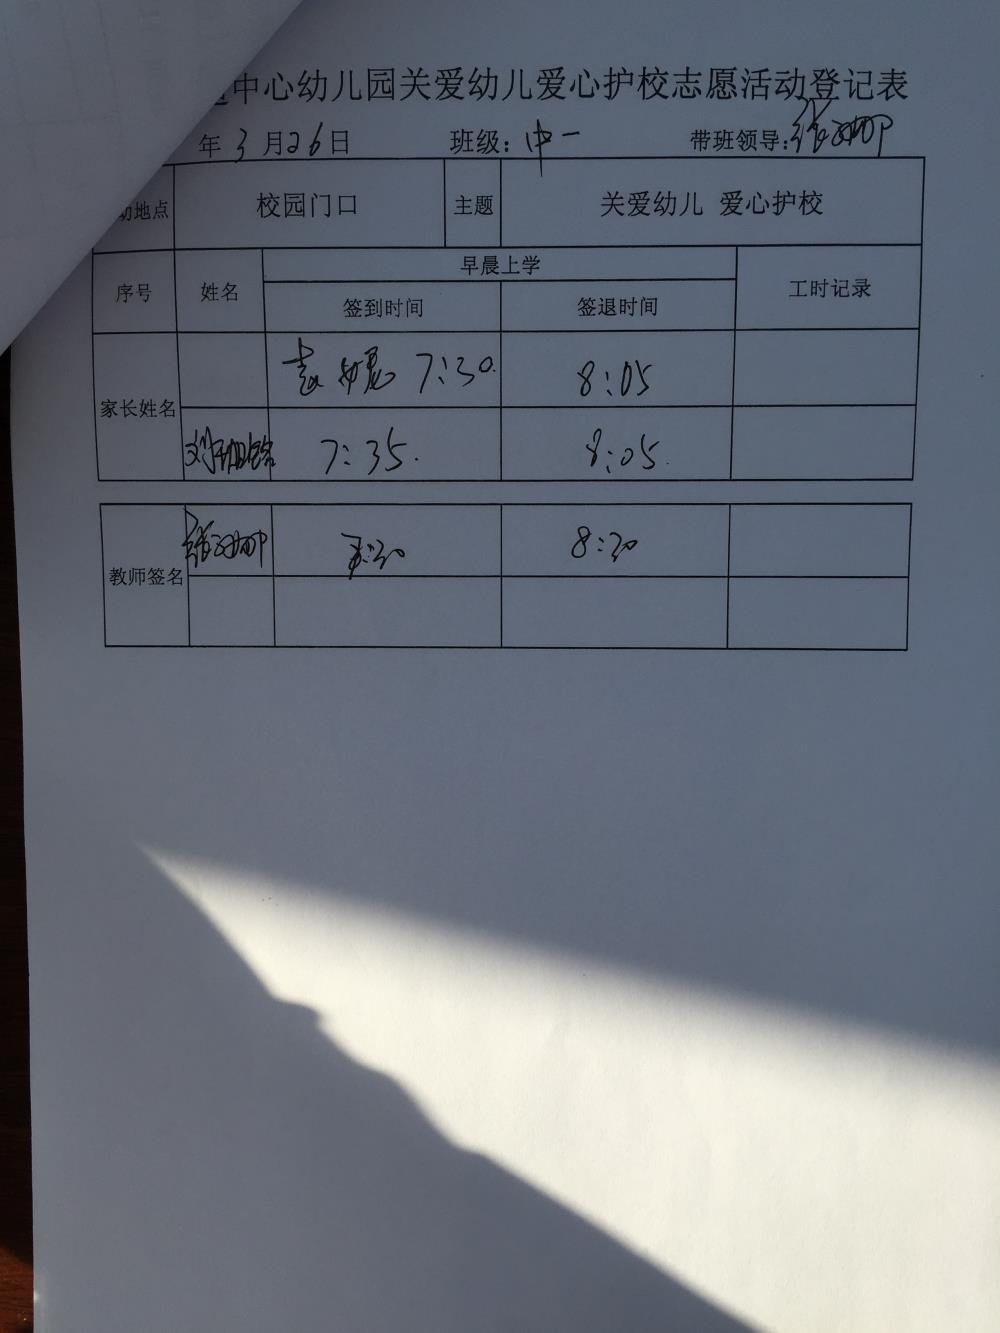 中心幼儿园关爱幼儿爱心护校志愿活动登记表
年3月26日 班级：中一 带班领导：
动地点 校园门口 主题 关爱幼儿 爱心护校
序号 姓名 早晨上学 工时记录
签到时间 签退时间
家长姓名
7:30 8:05
7:35. 8:05.
教师签名
8:20